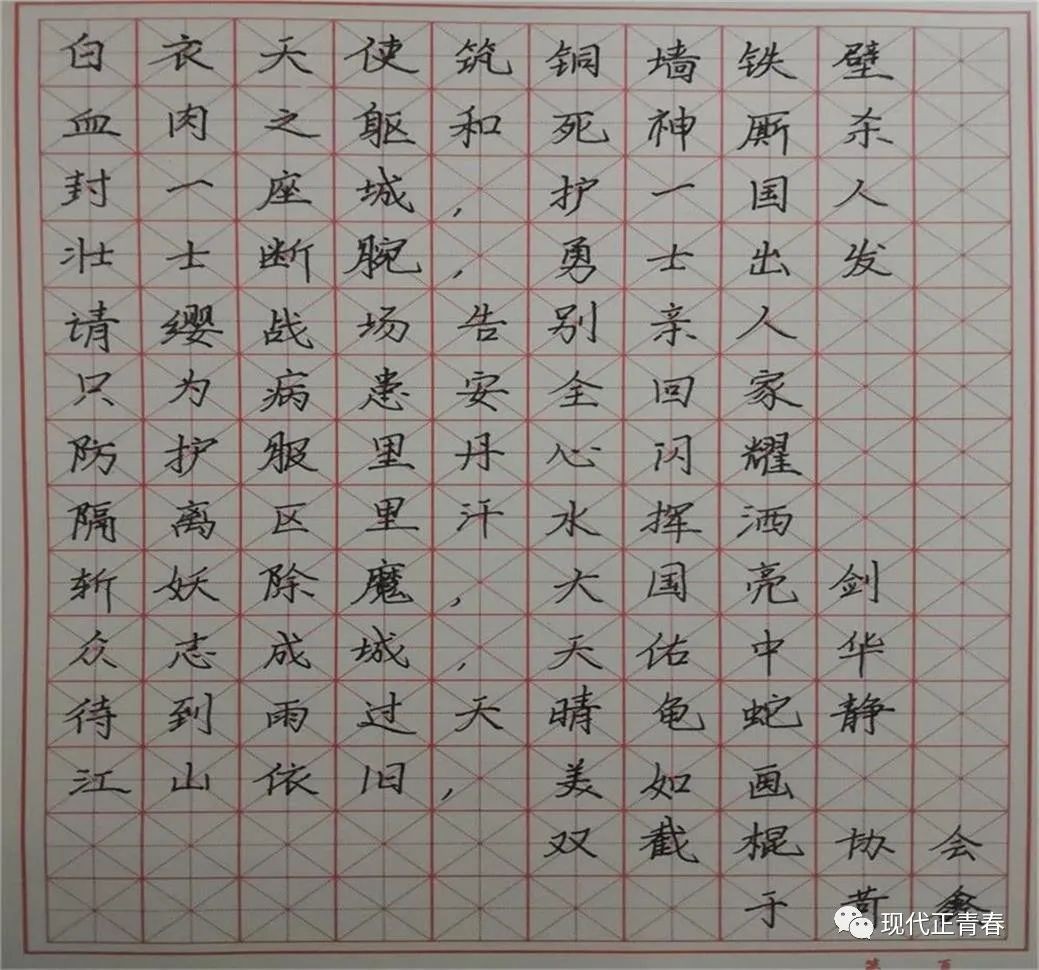 白衣天使筑铜墙铁壁
血肉之躯和死神厮杀
封一座城，护一国人
壮士断腕，勇士出发
请缨战场告别亲人
只为病患安全回家
防护服里丹心闪耀
隔离区里汗水挥洒
斩妖除魔，大国亮剑
众志成城，天佑中华
待到雨过天晴龟蛇静
江山依旧，美如画
双截棍协会
于
现代正青春